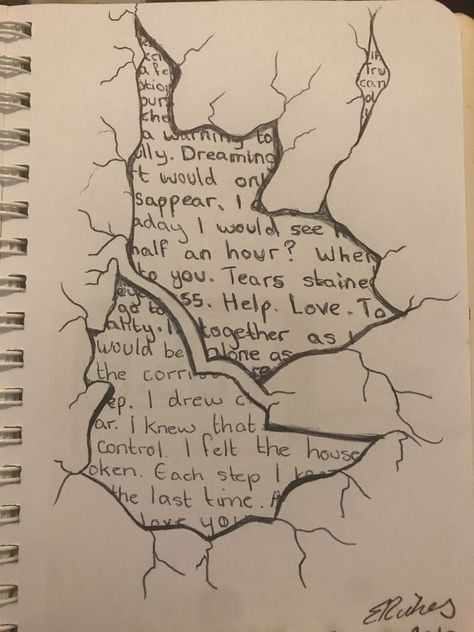 a warning to
ully. Dreaming
t would onl
sappear. I
aday I would see
half an hour? When
to you. Tears staine
55. Help. Love. To
go to
ality. I together as I
would be alone as
the corri
ep. I drew c
ar. I knew that
control. I felt the house
oken. Each step I
the last time. A
love you
in
Tru
can
d
ERiches